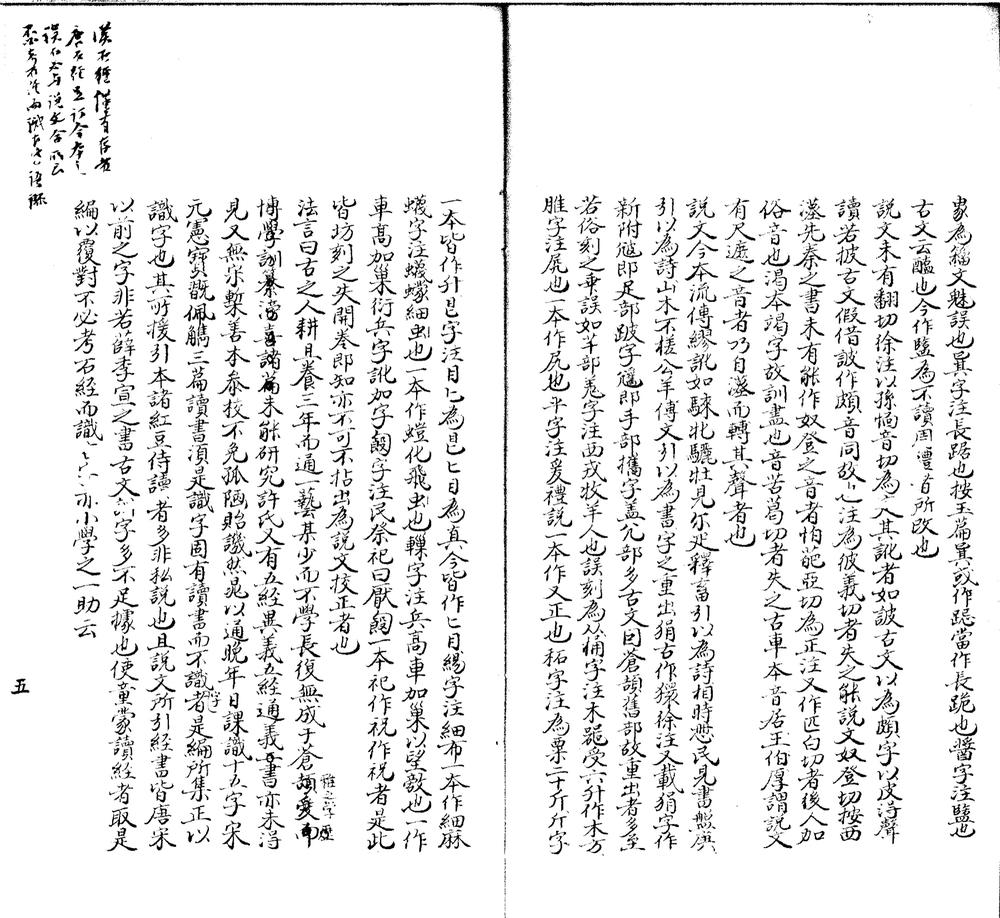 為籀文魅誤也㠱字注長踞也按玉篇㠱或作跽當作長跪也醬字注鹽也
古文云醢也今作鹽為不讀固漕者所改也
說文未有翻切徐注以孫愐音切為之其訛者如詖古文以為頗字以皮得聲
讀若披古文假借詖作頗音同故也注為彼義切者失之能說文奴登切按西
漢先秦之書未有能作奴登之音者怕葩亞切為正注又作匹白切者後人加
俗音也渴本竭字故訓盡也音苦葛切者失之古車本音居王伯厚謂說文
有尺遮之音者乃自漢而轉其聲者也
說文今本流傳繆訛如騋牝驪牡見尔疋釋畜引以為詩相時愍民見書盤庚
引以為詩山木不槎公羊傳文引以為書字之重出狷古作獧徐注又載狷字作
新附䟺即足部跛字𡯓即手部攜字盖尣部多古文因倉頡舊部故重出者多至
若俗刻之乖誤如羊部羌字注西戎牧羊人也誤刻為从桶字注木器受六升作木方
脽字注尻也一本作尻也平字注爰禮說一本作又正也秅字注為粟二十斤斤字
一本皆作升㠯字注目匕為㠯匕目為真今皆作匕目緆字注細布一本作細麻
蠛字注蠛蠓細虫也一本作螘化飛虫也轈字注兵高車加巢以望敵也一作
車高加巢衍兵字訛加字餽字注吳祭祀曰厭餽一本祀作祝作祝者是此
皆坊刻之失開卷即知亦不可不拈出為說文校正者也
法言曰古之人耕且養三年而通一藝某少而不學長復無成于蒼頡爰
雅之學
博學訓纂滂喜諸篇未能研究許氏又有五經異義五經通義書亦未得
見又無宋槧善本參校不免孤陋貽譏然晁以通晚年日課識十五字宋
元憲寶既佩觿三篇讀書須是識字固有讀書而不識字者是編所集正以
識字也其所援引本諸紅豆侍讀者多非私說也且說文所引經書皆唐宋
以前之字非若薛季宣之書古文訓字多不足據也使童蒙讀經者取是
編以覆對不必考石經而識亦小學之一助云
漢石經僅有存者
唐石經
與說文合
五